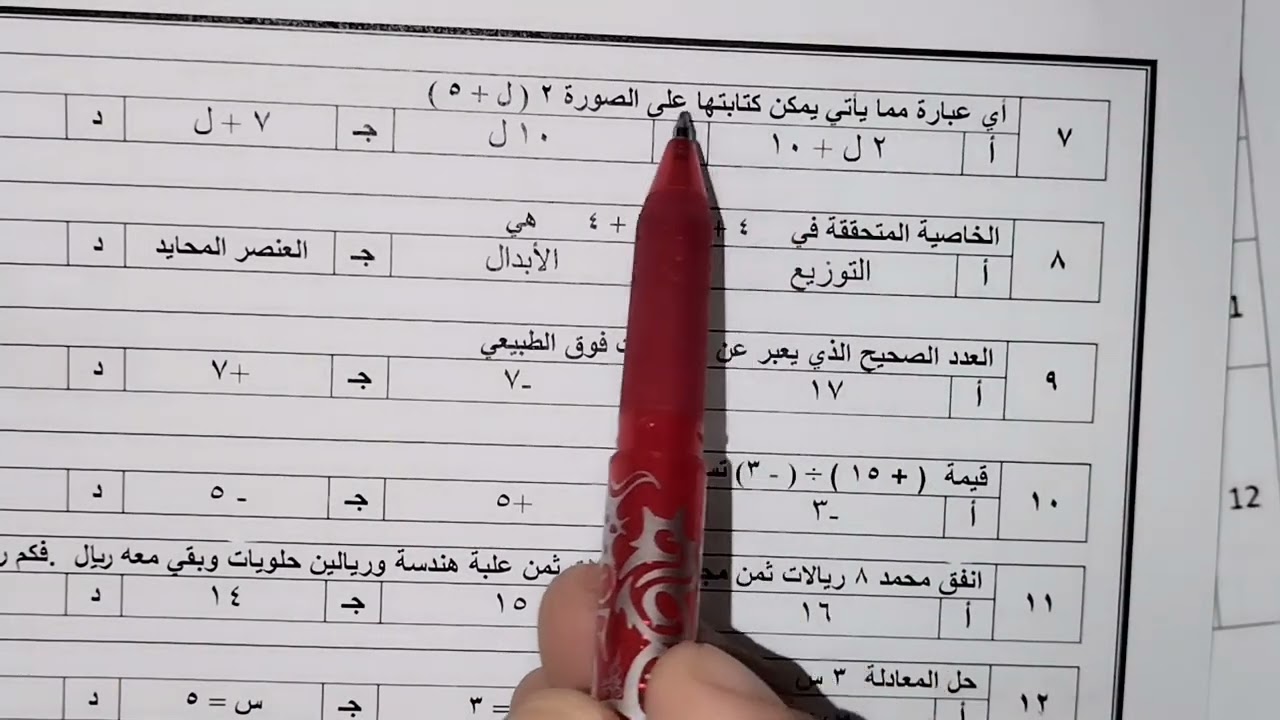 ٧ أي عبارة مما يأتي يمكن كتابتها على الصورة ٢ ( ل + ٥ )
أ ٢ ل + ١٠ ١٠ ل جـ ٧ + ل د
٨ الخاصية المتحققة في ٤ + + ٤ هي
أ التوزيع الأبدال جـ العنصر المحايد د
٩ العدد الصحيح الذي يعبر عن فوق الطبيعي
أ ١٧ -٧ جـ +٧ د
١٠ قيمة ( + ١٥ ) ÷ ( - ٣)
أ -٣ +٥ جـ - ٥ د
١١ انفق محمد ٨ ريالات ثمن ثمن علبة هندسة وريالين حلويات وبقي معه ريال .فكم
أ ١٦ ١٥ جـ ١٤ د
١٢ حل المعادلة ٣ س
أ = ٣ جـ س = ٥ د
1
12